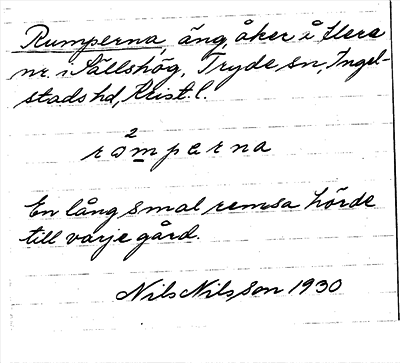 Rumperna, äng, åker i å flera
nr. i Sällshög, Tryde sn, Ingel-
stads hd, Krist l.
2
römperna
En lång smal remsa hörde
till varje gård.
Nils Nilsson 1930